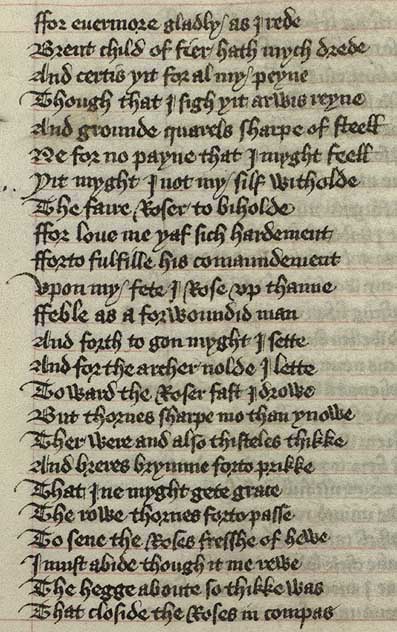 ffor euermore gladly / as I rede
Brent child of fier / hath mych drede
And certis yit for al my / peyne
Though that I sigh yit arwis reyne
And grounde quarels sharpe of steell
Ne for no payne that I myght feell
Yit myght I not my / silf witholde
The faire Roser to biholde
ffor love me yaf sich hardement
fforto fulfille his comaundement
Vpon my / fete I Rose vp thanne
ffeble as a forwoundid man
And forth to gon myght I sette
And for the archer nolde I lette
Toward the Roser fast I drowe
But thornes sharpe mo than ynowe
Ther were and also thisteles thikke
And breres brymme forto prikke
That I ne myght gete grace
The rowe thornes forto passe
To sene the Roses fresshe of hewe
I must abide though it me rewe
The hegge aboute so thikke was
That closide the Roses in compas